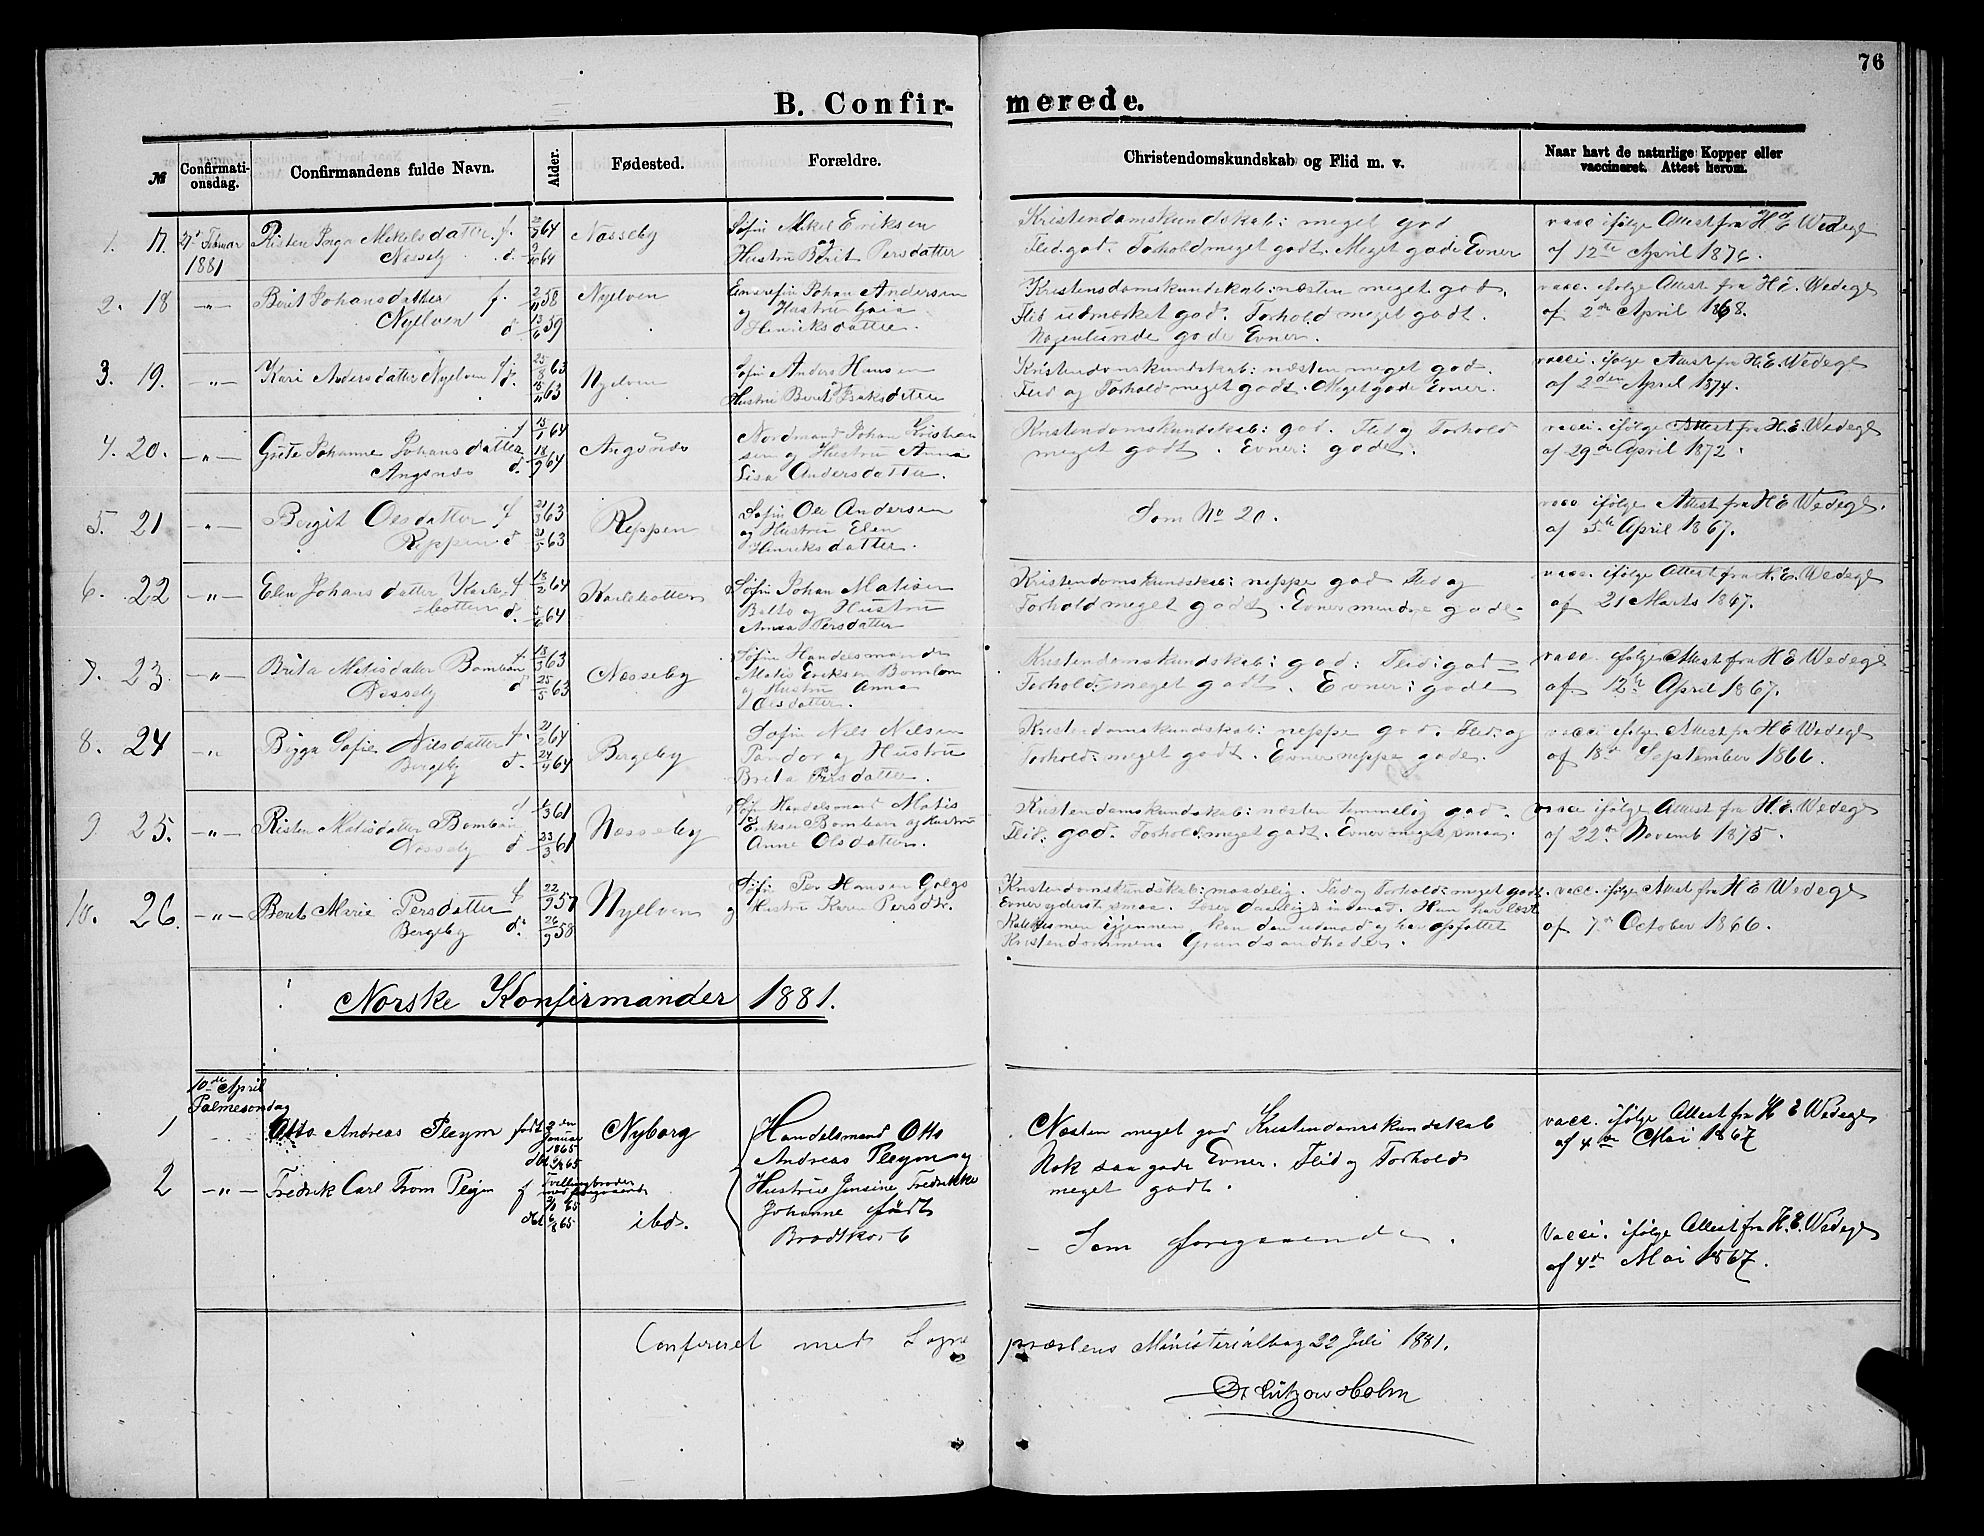 76
B. Confirmerede.
№ Confirmationsdag. Confirmandens fulde Navn. Alder. Fødested. Forældre. Christendomskundskab og Flid m. v. Naar havt de naturlige Kopper eller vaccineret. Attest herom.
1. 17. Februar 1881 Risten Inga Mikelsdatter f. 64 Næsseby Søfin Mikel Eriksen
Nesseby d. 64 og Hustru Berit Persdatter
Kristendomskundskab: meget god
Flid: god. Forhold meget godt. Meget gode Evner
vacc ifølge Attest fra H. E. Wedege
af 12te April 1876.
2. 18 -"- Berit Johansdatter f. 58 Nyelven Johan Andersen
Nyelven d 13/6 59 og Hustru
Henriksdatter.
Kristendomskundskab: næsten meget god.
Flid udmærket god. Forhold meget godt.
Nogenlunde gode Evner.
vacc. ifølge Attest fra H. E. Wedege
af 2den April 1868.
3. 19. -"- Kari Andersdatter Nyelven f. 25/8 63 Nyelven Søfin Anders Hansen
63 Hustru Berit Isaksdatter
Kristendomskundskab: næsten meget god.
Flid og Forhold meget godt. Meget gode Evner.
vacci. ifølge Attest fra H. E. Wedege
af 2den April 1874.
4. 20. -"- Grete Johanne Johansdatter f 64 Angsnæs Nordmand Johan Kristian
Angsnæs d. 18/9 64 sen og Hustru Anna
Lisa Andersdatter.
Kristendomskundskab: god. Flid og Forhold
meget godt. Evner: gode.
vacci. ifølge Attest fra H. E. Wedege
af 29de April 1872.
5. 21 -"- Bergit Olsdatter f 63 Reppen Søfin Ole Andersen
Reppen d 63 og Hustru Elen
Henriksdatter.
Som No 20.
vacc ifølge Attest fra H E Wedege.
af 5te April 1867.
6. 22 -"- Elen Johansdatter Karle- f 18/2 64 Karlebotten Søfin Johan Matisen
botten d. 5/6 64 Balto og Hustru
Anna Persdatter
Kristendomskundskab: neppe god Flid og
Forhold meget godt. Evner mindre gode.
vacc. ifølge Attest fra H. E. Wedege
af 21 Marts 1867.
7. 23. -"- Brita Matisdatter Bomban f. 18/3 63 Næsseby Søfin Handelsmand
Nesseby d 25/5 63 Matis Eriksen Bomban
og Hustru Anna
Olsdatter.
Kristendomskundskab: god: Flid: god
Forhold: meget godt. Evner: gode
vacc. ifølge Attest fra H E Wedege
af 12te April 1867.
8. 24 -"- Bigga Sofie Nilsdatter f. 64 Bergeby Søfin Nils Nilsen
Bergeby d. 64 og Hustru
Brita Persdatter.
Kristendomskundskab: neppe god. Flid og
Forhold: meget godt. Evner neppe gode.
vacci ifølge Attest fra H E Wedege
af 18de September 1866.
9. 25. -"- Risten Matisdatter Bomban f 61 Næsseby Søfin Handelsmand Matis
Nesseby d 23/3 61 Eriksen Bomban og Hustru
Anne Olsdatter.
Kristendomskundskab: næsten temmelig god.
Flid: god. Forhold: meget godt. Evner meget smaa.
vacc ifølge Attest fra H. E. Wedege
af 22de Novemb 1875.
10. 26. -"- Berit Marie Persdatter f 22/9 57 Nyelven Søfin Per Hansen
Bergeby d. 26/9 58 og Hustru Karen Persdtr.
Kristendomskundskab: maadelig. Flid og Forhold: meget godt.
Evner yderst smaa. Læser daarligt indenad. Hun har læst
Katekismen igjennem, kan den udenad og har opfattet
Kristendommens Grundsandheder.
vacc. ifølge Attest fra H E Wedege
af 7de October 1866.
Norske Konfirmander 1881.
10de April
Palmesøndag
1 Otto Andreas Pleym født 2den Januar 1865 Nyborg Handelsmand Otto
Andreas Pleym og
Hustrue Jensine Fredrikke
Johanne født
Brodtkorb
Næsten meget god Kristendomskundskab
Nok saa gode Evner. Flid og Forhold
meget godt.
vacc. ifølge Attest fra H E Wedege
af 4de Mai 1867
2 -"- Fredrik Carl From Pleym f Tvillingbroder
med foregaaende
65
dbt 65 ibd.
- Som foregaaende.
Vacci. ifølge Attest fra H. E. Wedege
af 4de Mai 1867.
Confereret med Sogne præstens Ministerialbog 22 Juli 1881.
Lützow Holm